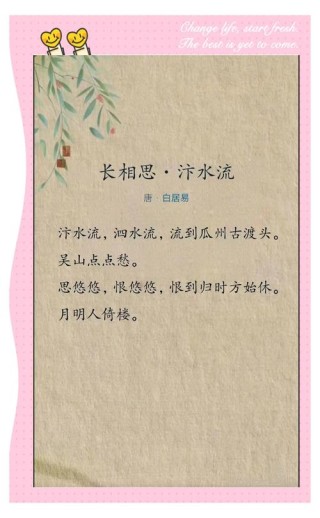 Change life, start fresh.
The best is yet to come.
长相思·汴水流
唐 白居易
汴水流，泗水流，流到瓜州古渡头。
吴山点点愁。
思悠悠，恨悠悠，恨到归时方始休。
月明人倚楼。